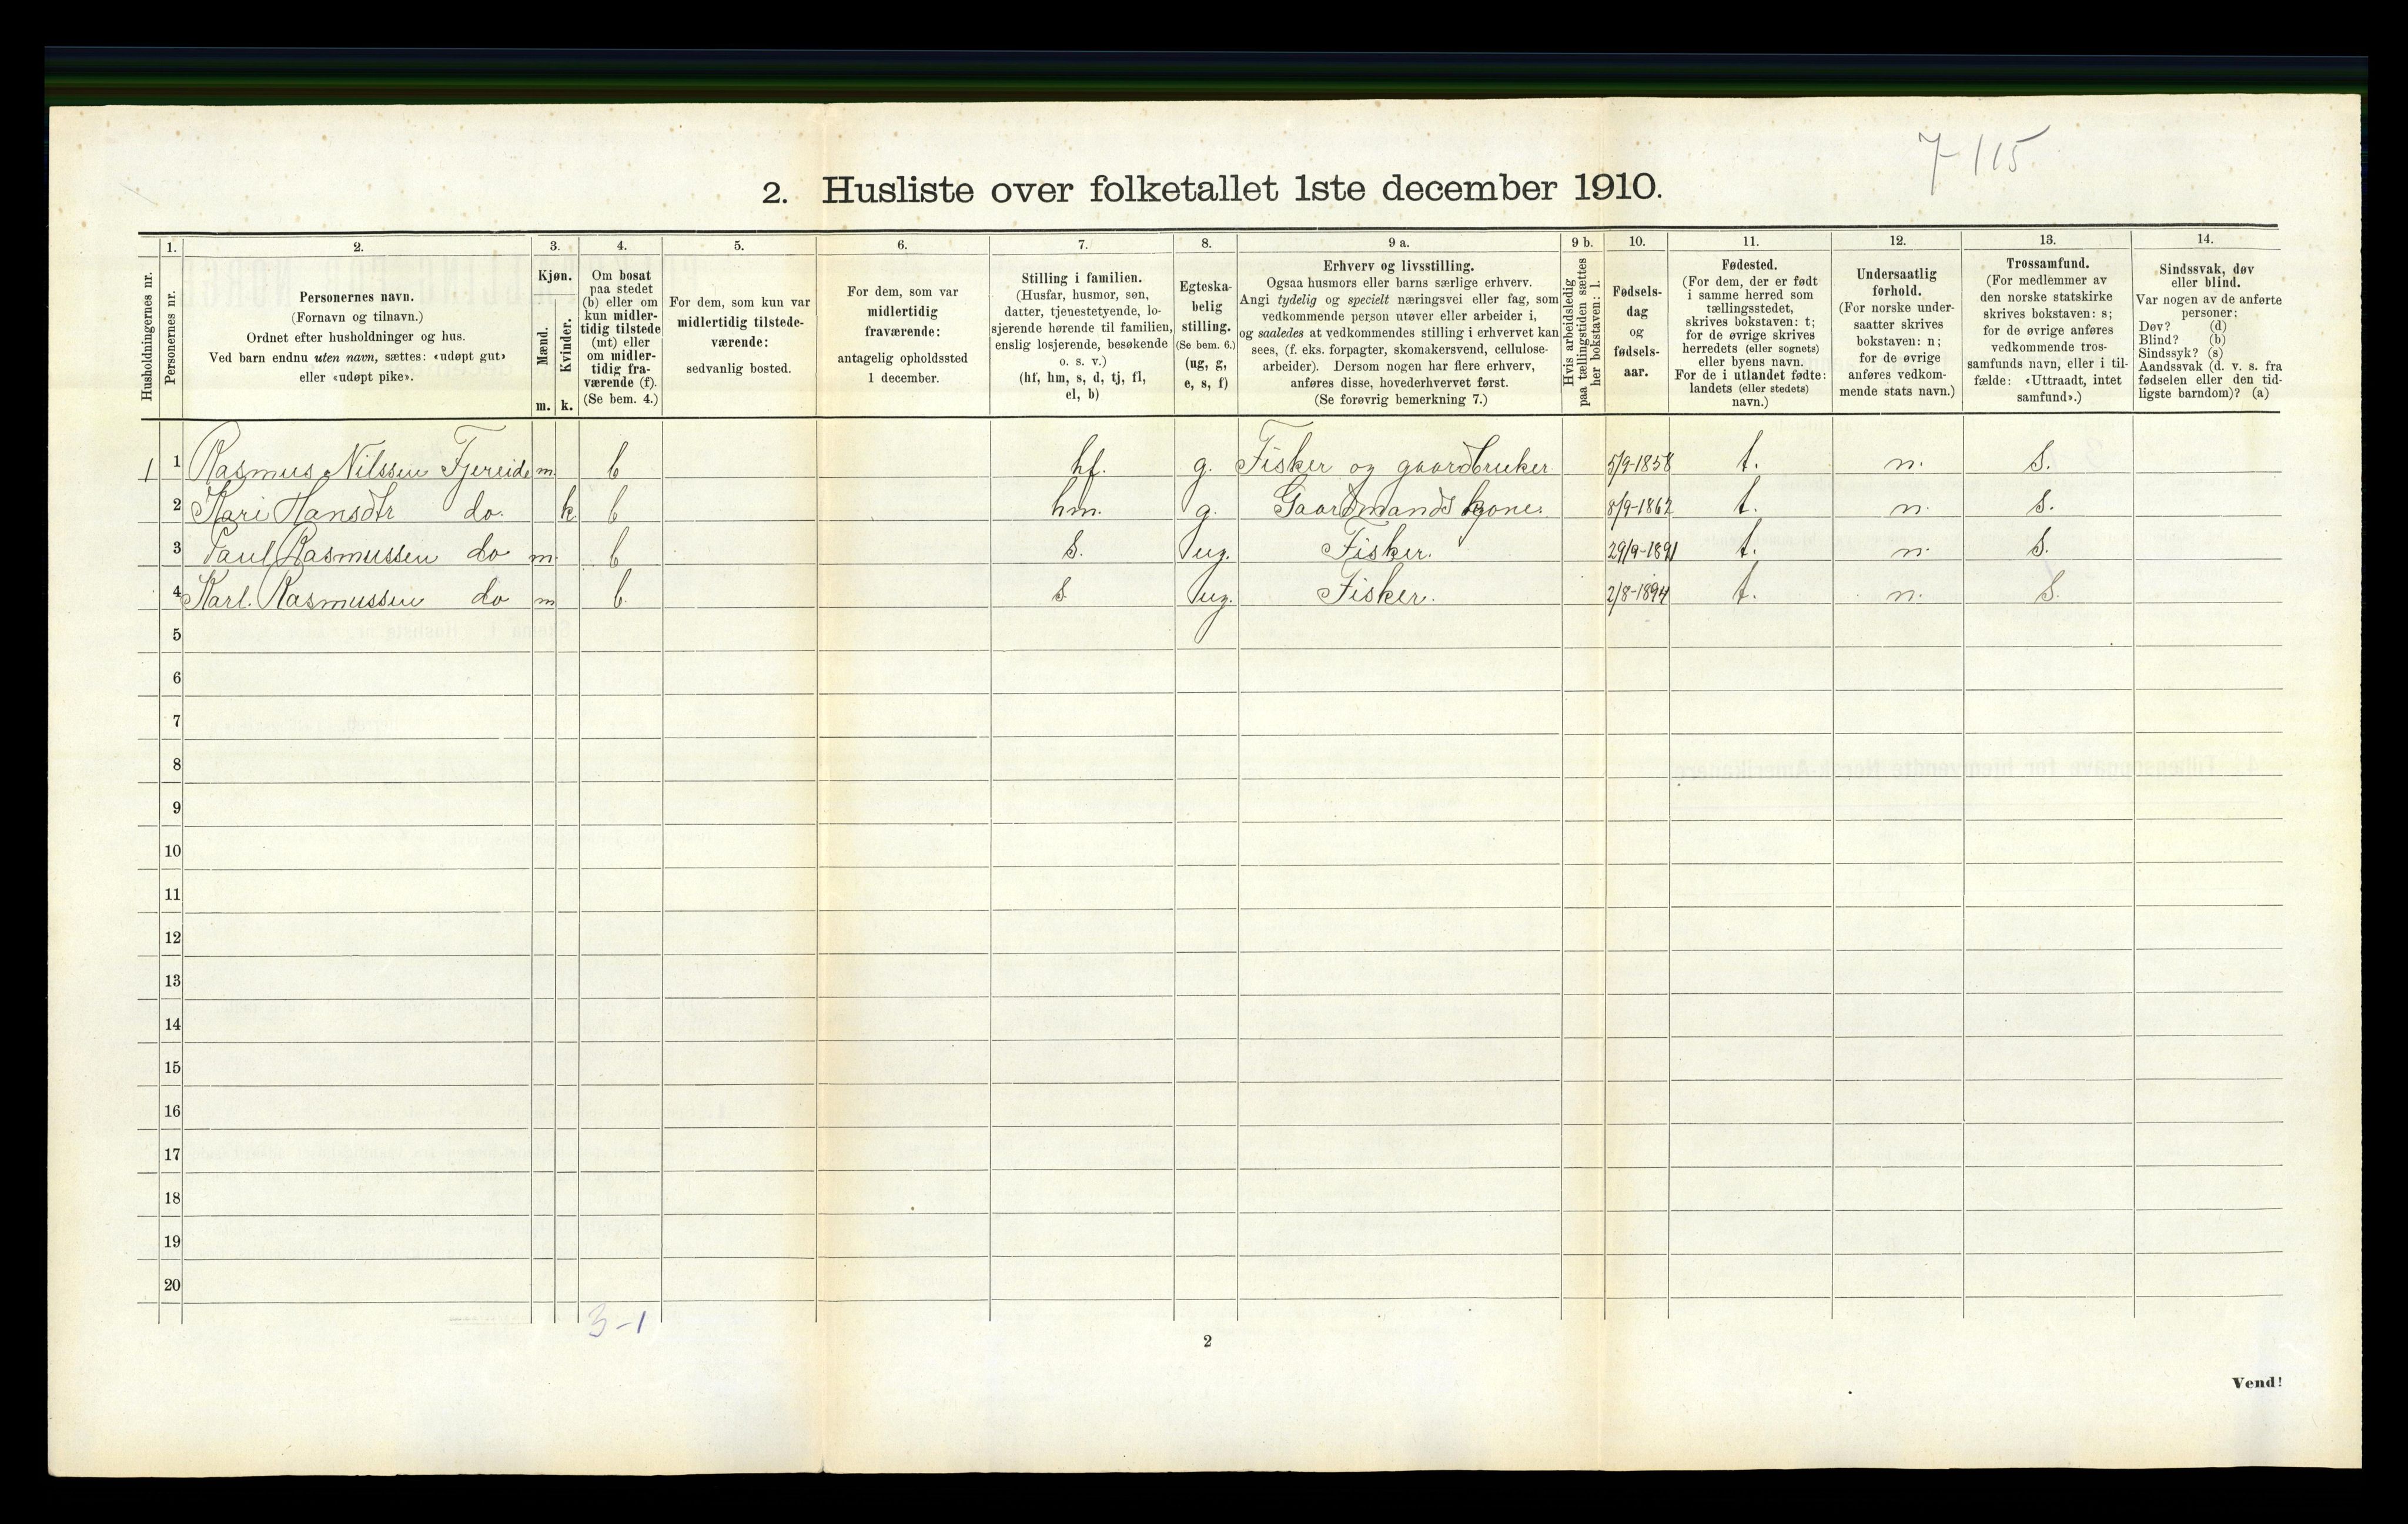 7-115
2. Husliste over folketallet 1ste december 1910.
Husholdningernes nr.
1.
Personernes nr.
2.
Personernes navn.
(Fornavn og tilnavn.)
Ordnet efter husholdninger og hus.
Ved barn endnu uten navn, sættes: «udøpt gut»
eller «udøpt pike».
3.
Kjøn.
Mænd.
Kvinder.
m. k.
4.
Om bosat
paa stedet
(b) eller om
kun midler-
tidig tilstede
(mt) eller
om midler-
tidig fra-
værende (f).
(Se bem. 4.)
5.
For dem, som kun var
midlertidig tilstede-
værende:
sedvanlig bosted.
6.
For dem, som var
midlertidig
fraværende:
antagelig opholdssted
1 december.
7.
Stilling i familien.
(Husfar, husmor, søn,
datter, tjenestetyende, lo-
sjerende hørende til familien,
enslig losjerende, besøkende
o. s. v.)
(hf, hm, s, d, tj, fl,
el, b)
8.
Egteska-
belig
stilling.
(Se bem. 6.)
(ug, g,
e, s, f)
9 a.
Erhverv og livsstilling.
Ogsaa husmors eller barns særlige erhverv.
Angi tydelig og specielt næringsvei eller fag, som
vedkommende person utøver eller arbeider i,
og saaledes at vedkommendes stilling i erhvervet kan
sees, (f. eks. forpagter, skomakersvend, cellulose-
arbeider). Dersom nogen har flere erhverv,
anføres disse, hovederhvervet først.
(Se forøvrig bemerkning 7.)
9 b.
Hvis arbeidsledig
paa tællingstiden sættes
her bokstaven: l.
10.
Fødsels-
dag
og
fødsels-
aar.
11.
Fødested.
(For dem, der er født
i samme herred som
tællingsstedet,
skrives bokstaven: t;
for de øvrige skrives
herredets (eller sognets)
eller byens navn.
For de i utlandet fødte:
landets (eller stedets)
navn.)
12.
Undersaatlig
forhold.
(For norske under-
saatter skrives
bokstaven: n;
for de øvrige
anføres vedkom-
mende stats navn.)
13.
Trossamfund.
(For medlemmer av
den norske statskirke
skrives bokstaven: s;
for de øvrige anføres
vedkommende tros-
samfunds navn, eller i til-
fælde: «Uttraadt, intet
samfund».)
14.
Sindssvak, døv
eller blind.
Var nogen av de anførte
personer:
Døv? (d)
Blind? (b)
Sindssyk? (s)
Aandssvak (d. v. s. fra
fødselen eller den tid-
ligste barndom)? (a)
1 1 Rasmus Nilssen Fjereide m. b hf. g. Fisker og gaardbruker 5/9-1858 t. n. S.
2 Kari Hansdtr do. k b hm. g. Gaardmands kone. 8/9-1862 t. n. S.
3 Paul Rasmussen do m. b S. ug. Fisker. 29/9-1891 t. n. S.
4 Karl. Rasmussen do m b S. ug. Fisker. 2/8-1894 t. n. S.
5
6
7
8
9
10
11
12
13
14
15
16
17
18
19
20
3-1
2
Vend!